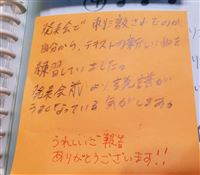 発表会で刺激されたのか
自分から、テキストの新しい曲を
練習していました。
発表会前より読譜が
うまくなっている気がします。
うれしいご報告
ありがとうございます!!